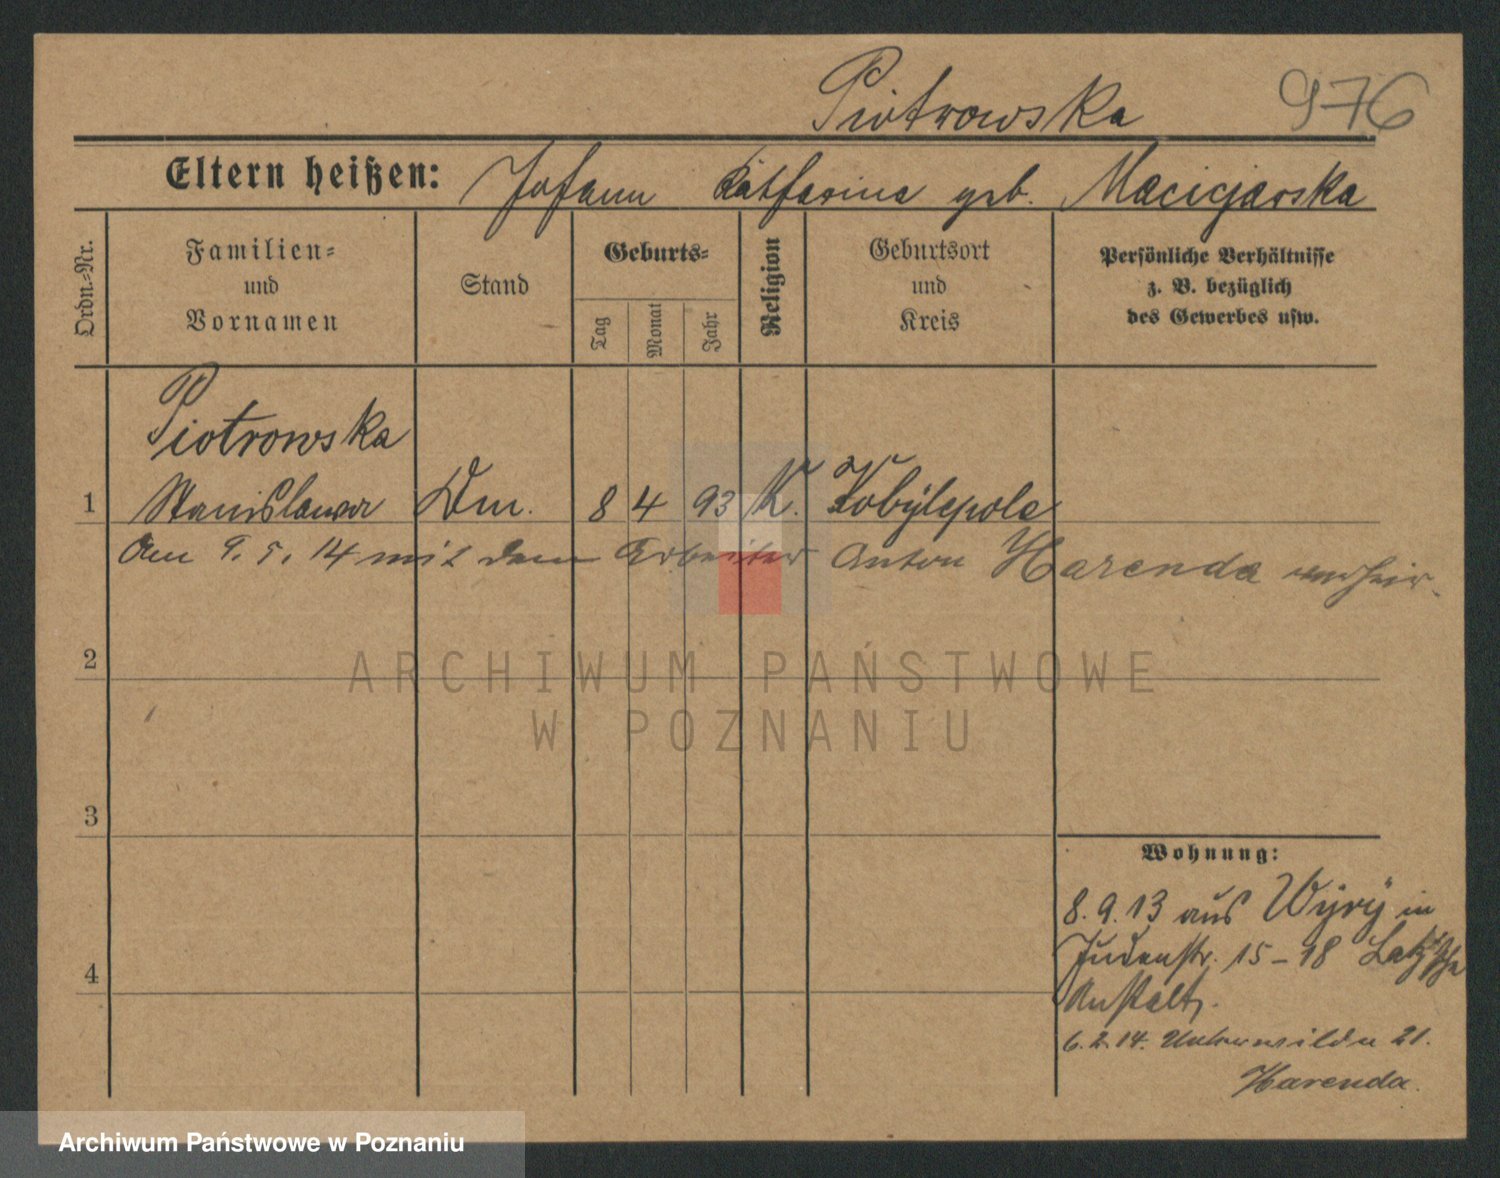 Piotrowska 976
Eltern heißen: Johann Katharina geb. Maciejarska
Ordn.-Nr.
Familien-
und
Vornamen
Stand
Geburts-
Tag
Monat
Jahr
Religion
Geburtsort
und
Kreis
Persönliche Verhältnisse
z. B. bezüglich
des Gewerbes usw.
Piotrowska
1 Stanislawa Dm. 8 4 93 K. Kobylepole
Am 9. 5. 14 mit dem Arbeiter Anton Harenda verheir.
2
3
4
Wohnung:
8. 9. 13 aus Wyry in
Judenstr. 15-18
Anstalt.
6. 2. 14. Unterwilda 21.
Harenda.
ARCHIWUM PAŃSTWOWE
W POZNANIU
Archiwum Państwowe w Poznaniu